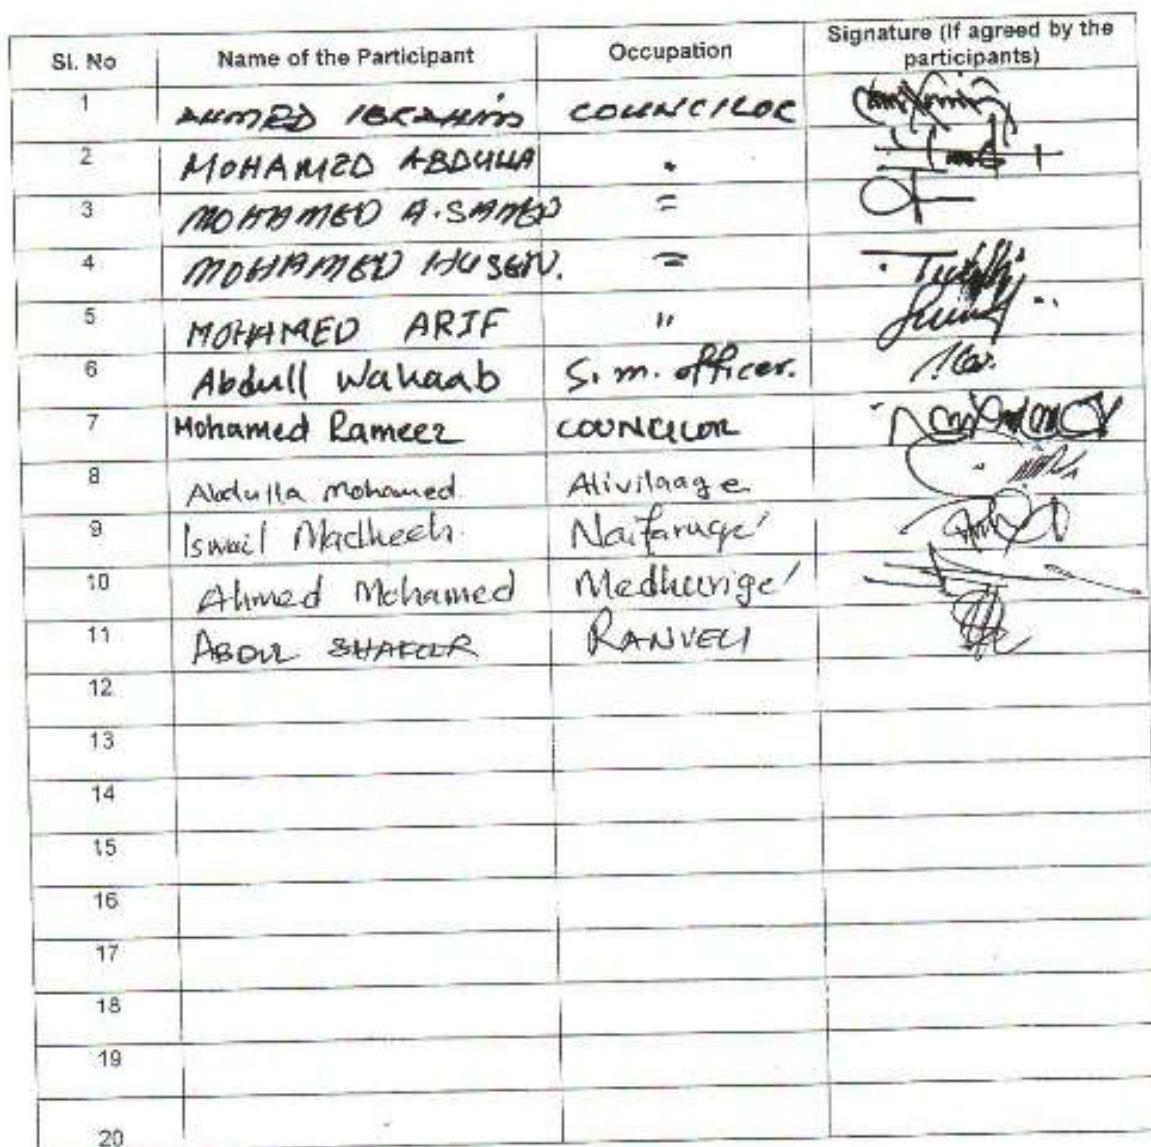 Sl. No Name of the Participant Occupation Signature (If agreed by the participants)
1 AHMED IBRAHIM COUNCILOR
2 MOHAMED ABDULLA "
3 MOHAMED A. SAMED =
4 MOHAMED HUSEN. =
5 MOHAMED ARIF "
6 Abdull Wahaab S.m. officer.
7 Mohamed Rameez COUNCILOR
8 Abdulla Mohamed. Alivilaage
9 Ismail Madheeh. Naifaruge'
10 Ahmed Mohamed Medhuvige'
11 ABDUL SHAKUR RANVELI
12
13
14
15
16
17
18
19
20